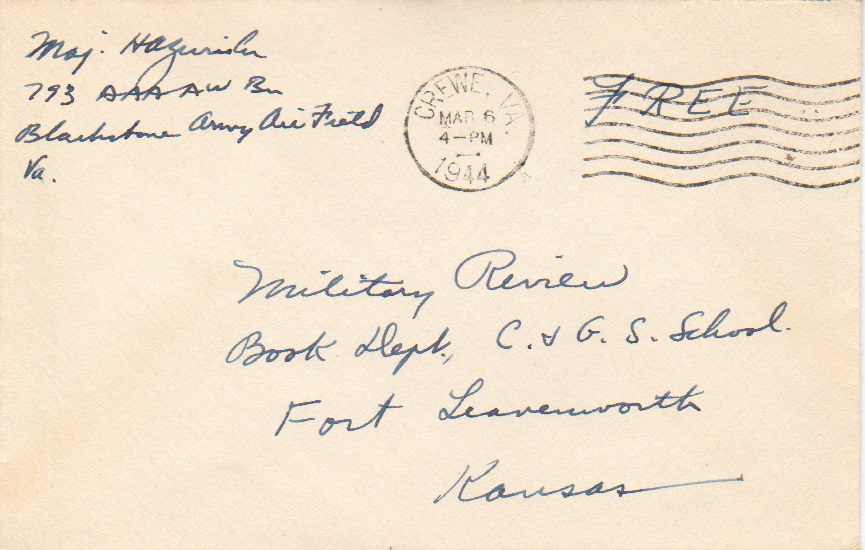 Maj.
793 AAA AW Bn
Blackstone Army Air Field
Va.
CREWE, VA.
MAR 6
4-PM
1944
FREE
Military Review
Book Dept., C. & G. S. School.
Fort Leavenworth
Kansas